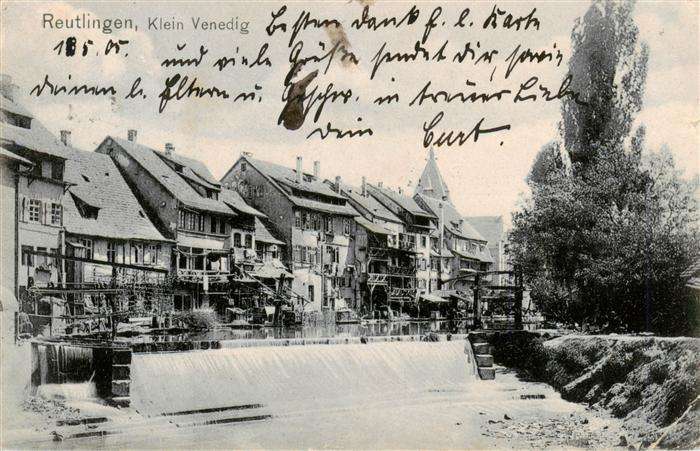 Reutlingen, Klein Venedig
Besten Dank f. l. Karte
18.5.05. und viele Grüße sendet Dir, sowie
deinen l. Eltern u. Geschw. in treuer Liebe
dein Curt.